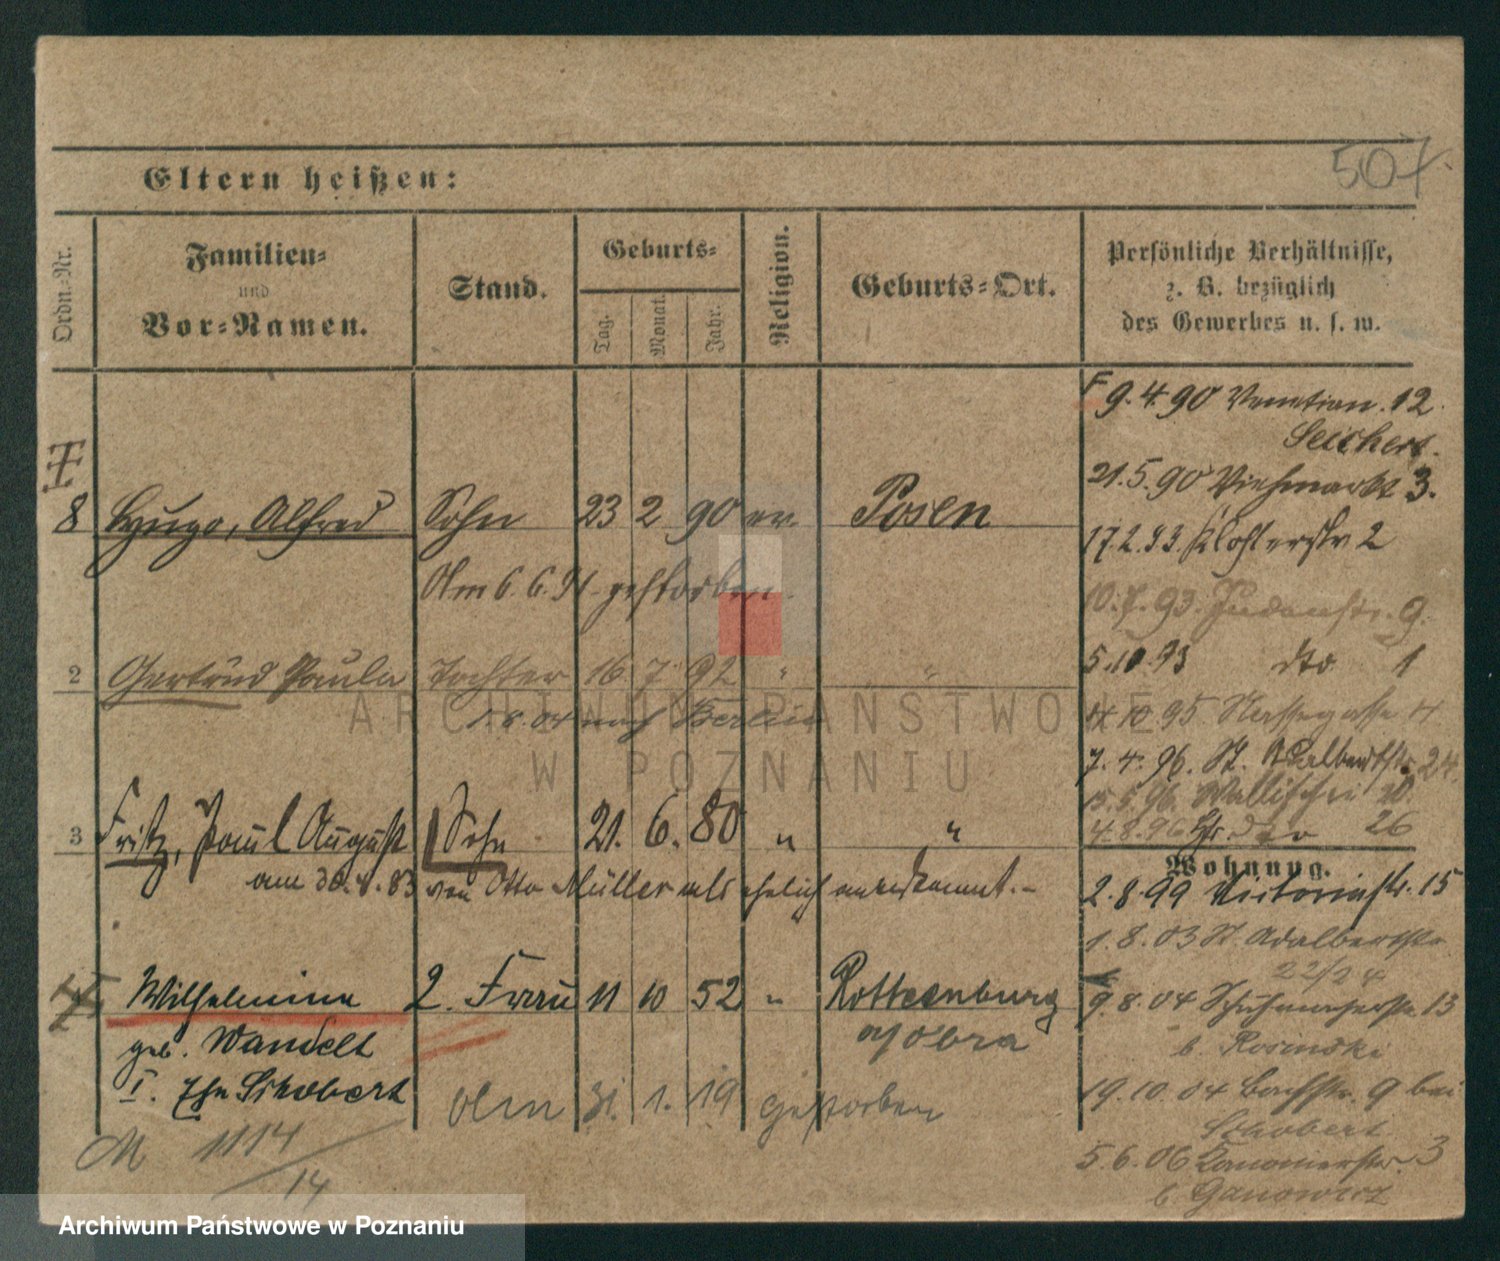 507
Eltern heißen:
Ordn.-Nr.
Familien-
und
Vor-Namen.
Stand.
Geburts-
Tag.
Monat.
Jahr.
Religion.
Geburts-Ort.
Persönliche Verhältnisse,
z. B. bezüglich
des Gewerbes u. s. w.
F 9.4.90 Venetian. 12
Seichert.
21.5.90 Viehmarkt 3.
8 Hugo, Alfred Sohn 23 2 90 ev Posen
17.2.93. Klosterstr 2
Am 6.6.91 gestorben
10.7.93. Judenstr. 9.
5.10.93 dto 1
2 Gertrud Paula Tochter 16 7 92 " "
04 nach Berlin
10 95 Nassegasse 4
7.4.96. St. Adalbertstr. 24.
15.5.96. Wallischei
4.8.96 dto 26
3 Fritz, Paul August Sohn 21. 6. 80 " "
Wohnung.
am 30.8.83 von Otto Müller als ehelich anerkannt.-
2.8.99 Victoriastr. 15
1.8.03 St. Adalbertstr
22/24
Wilhelmine 2. Frau 11 10 52 " Rottenburg
9.8.04 Schuhmacherstr. 13
geb. Wandelt a/Obra
b. Rosinski
I. Ehe Schobert
Am 31. 1. 19 gestorben
19.10.04 Bachstr. 9 bei
Schobert
M 1114/14
5.6.06 Kanonenstr. 3
b. Ganowicz
ARCHIWUM PAŃSTWOWE
W POZNANIU
Archiwum Państwowe w Poznaniu